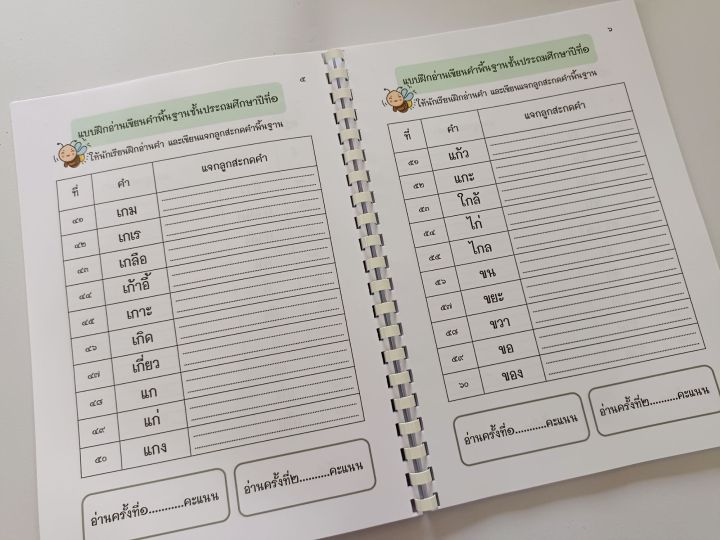 ๕
แบบฝึกอ่านเขียนคำพื้นฐานชั้นประถมศึกษาปีที่๑
ให้นักเรียนฝึกอ่านคำ และเขียนแจกลูกสะกดคำพื้นฐาน
ที่ คำ แจกลูกสะกดคำ
๔๑ เกม
๔๒ เกเร
๔๓ เกลือ
๔๔ เก้าอี้
๔๕ เกาะ
๔๖ เกิด
๔๗ เกี่ยว
๔๘ แก
๔๙ แก่
๕๐ แกง
อ่านครั้งที่๑...........คะแนน
อ่านครั้งที่๒..........คะแนน
๖
แบบฝึกอ่านเขียนคำพื้นฐานชั้นประถมศึกษาปีที่๑
ให้นักเรียนฝึกอ่านคำ และเขียนแจกลูกสะกดคำพื้นฐาน
ที่ คำ แจกลูกสะกดคำ
๕๑ แก้ว
๕๒ แกะ
๕๓ ใกล้
๕๔ ไก่
๕๕ ไกล
๕๖ ขน
๕๗ ขยะ
๕๘ ขวา
๕๙ ขอ
๖๐ ของ
อ่านครั้งที่๑...........คะแนน
อ่านครั้งที่๒..........คะแนน